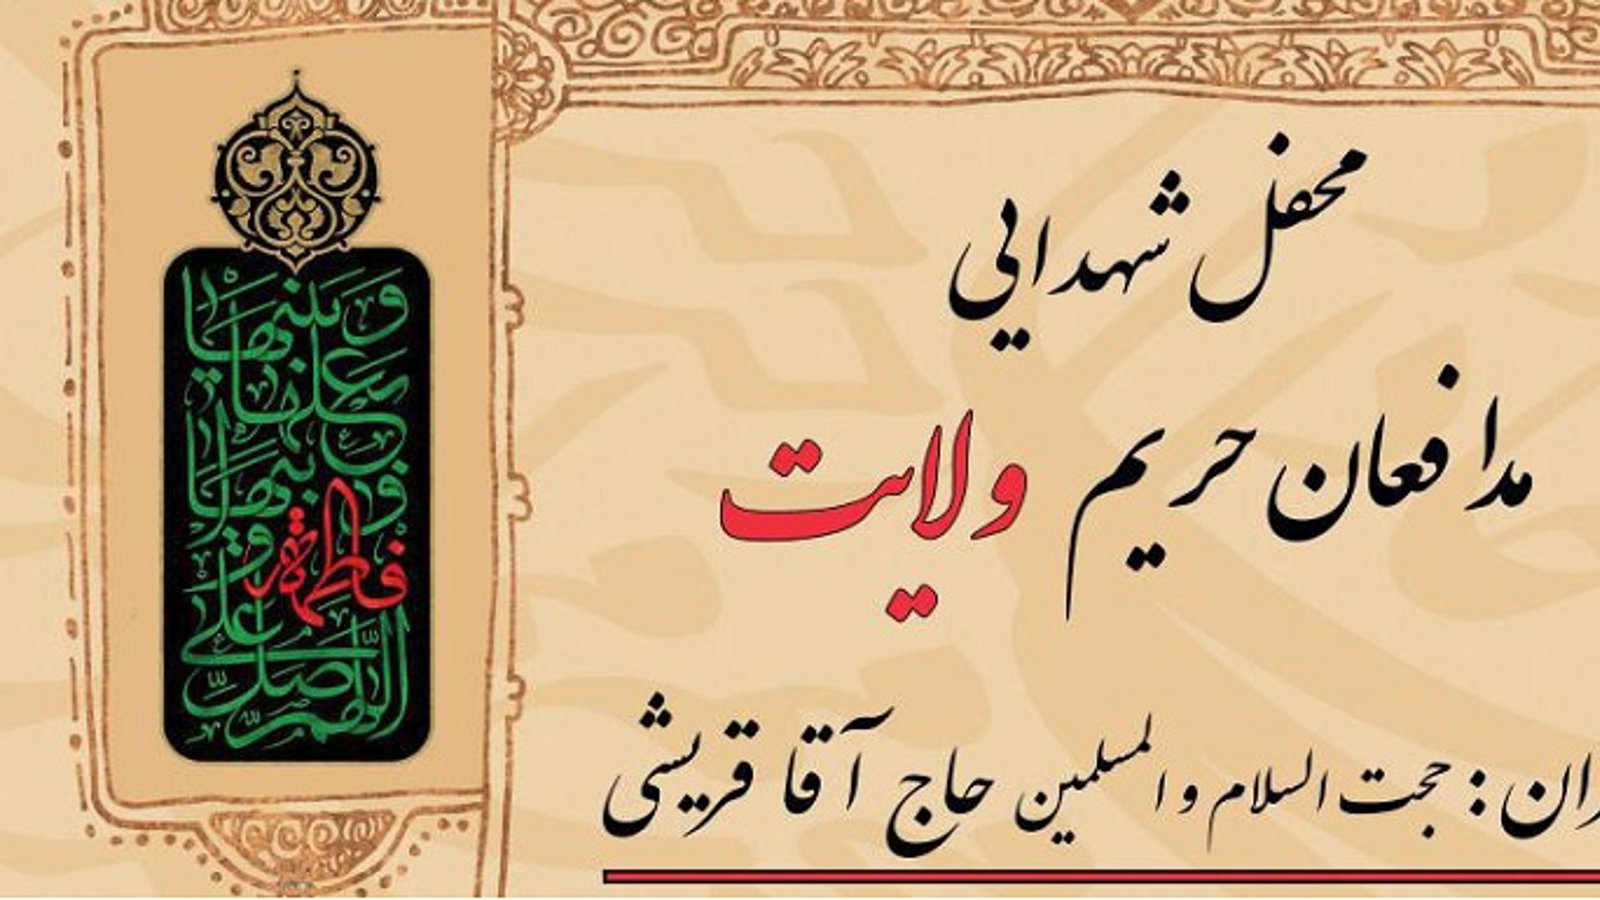 محفل شهدایی
مدافعان حریم ولایت
حجت السلام و المسلمین حاج آقا قریشی
اللهم صل علی
فاطمة و
ابیها و
بعلها
و بنیها